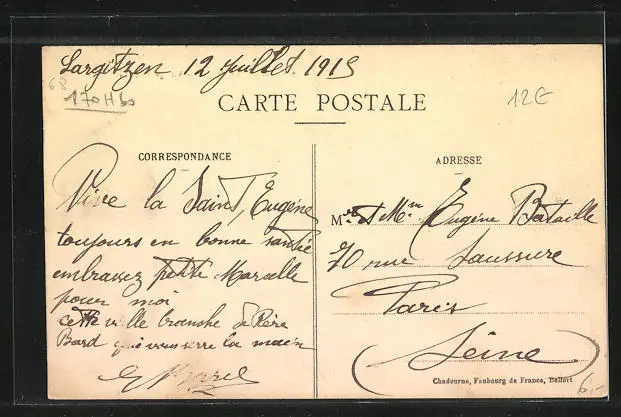 Largitzen 12 Juillet 1915
68
170H60
12E
CARTE POSTALE
CORRESPONDANCE
Vive la Saint Eugène
toujours en bonne santée
embrassez petite Marcelle
pour moi
cette ville branche de Père
Bard que vous serre la main
ADRESSE
Mr et Mme Eugène Bataille
70 rue Saussure
Paris
(Seine)
Chadourne, Faubourg de France, Belfort
6.-